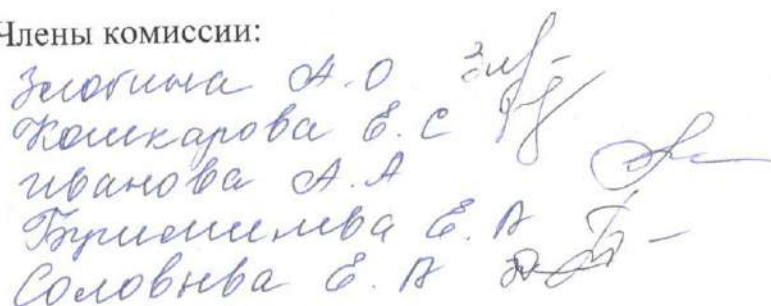 Члены комиссии:
Злобина А.О
Кошкарова Е.С
Иванова А.А
Е.А
Соловьева Е.А